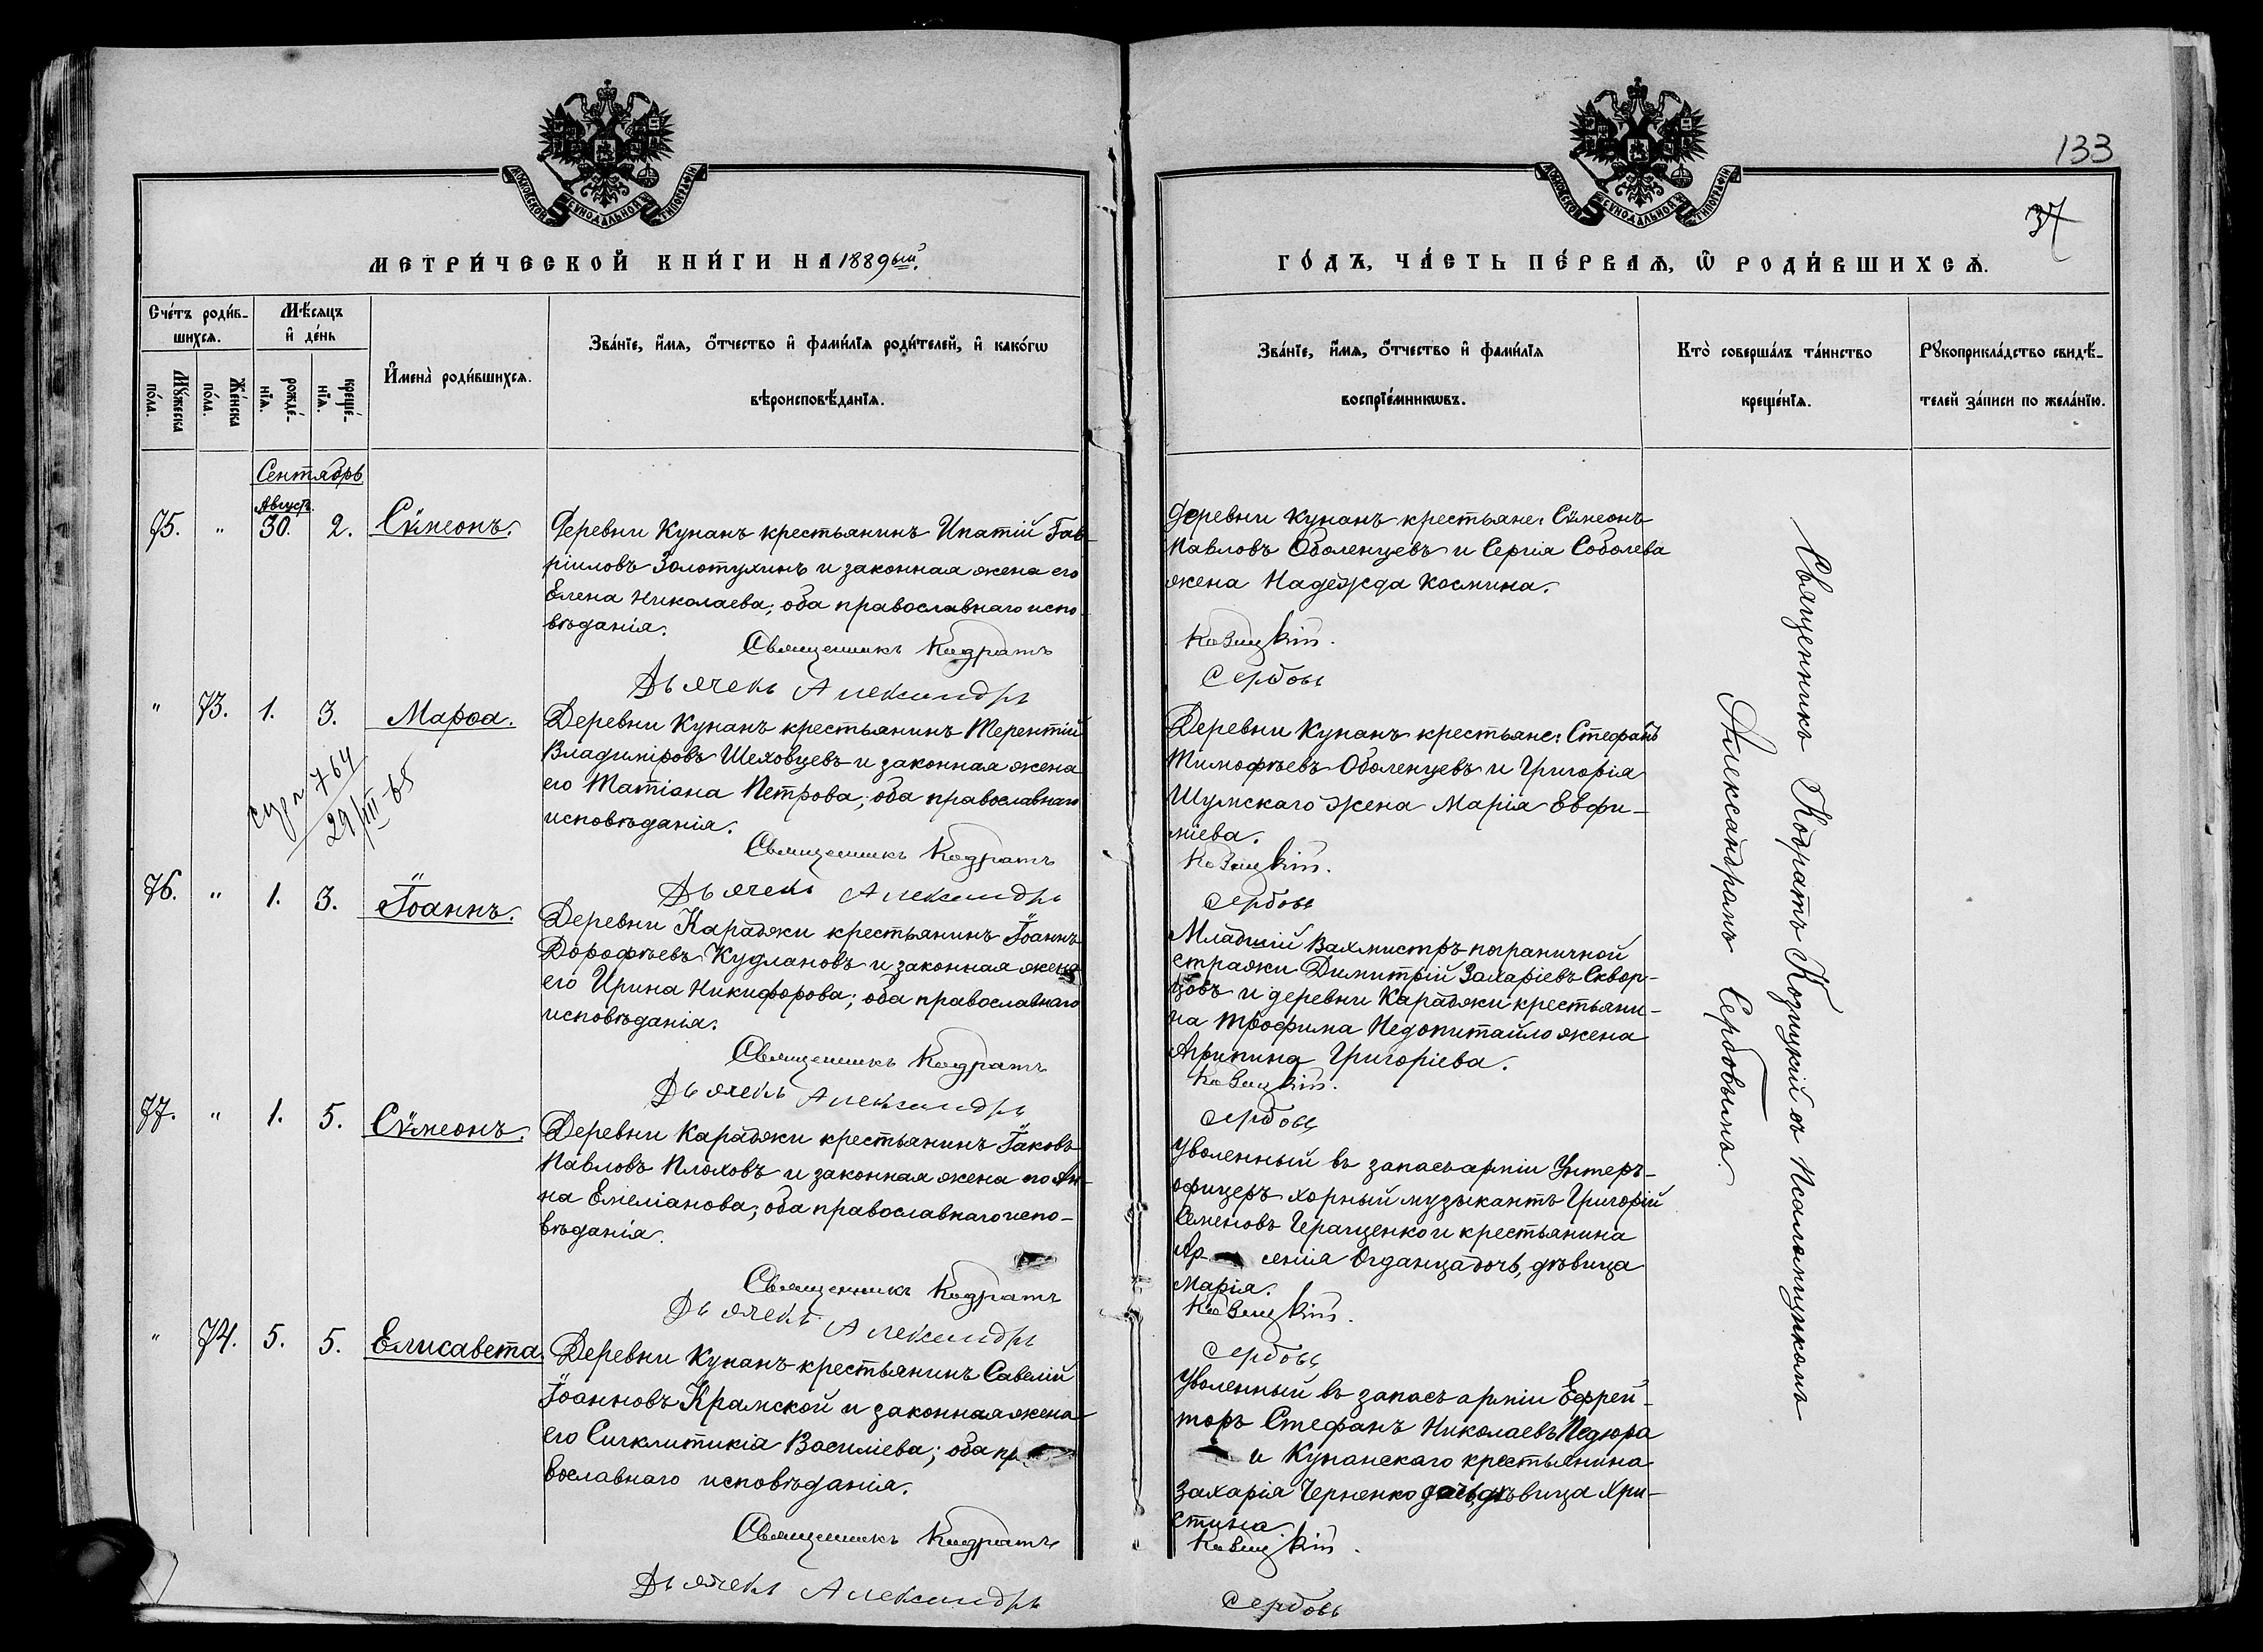 133
37
МОСКОВСКОЙ СѴНОДАЛЬНОЙ ТИПОГРАФІИ
МОСКОВСКОЙ СѴНОДАЛЬНОЙ ТИПОГРАФІИ
МЕТРИ́ЧЕСКОЙ КНИ́ГИ НА 1889ый.
ГО́ДЪ, ЧА́СТЬ ПЕ́РВАѦ, Ѡ҆ РОДИ́ВШИХСѦ.
Сче́тъ роди́в-
шихсѧ.
Мꙋ́жеска по́ла.
Же́нска по́ла.
Мѣ́сѧцъ
и҆ де́нь
рожде́-
нїѧ.
креще́-
нїѧ.
И҆мена̀ роди́вшихсѧ.
Зва́нїе, и҆́мѧ, ѻ҆́тчество и҆ фами́лїѧ роди́телей, и҆ како́гѡ
вѣроисповѣ́данїѧ.
Зва́нїе, и҆́мѧ, ѻ҆́тчество и҆ фами́лїѧ
воспрїе́мникѡвъ.
Кто̀ соверша́лъ та́инство
креще́нїѧ.
Рꙋкоприкла́дство свидѣ́-
телей за́писи по жела́нїю.
Сентябрь
Августъ.
75. " 30. 2. Сѵмеонъ.
Деревни Кунанъ крестьянинъ Ипатій Гав-
ріиловъ Золотухинъ и законная жена его
Елена Николаева; оба православнаго испо-
вѣданія.
Священникъ Кодратъ
Дьячекъ Александръ
Деревни Кунанъ крестьяне: Сѵмеонъ
Павловъ Оболенцевъ и Сергія Соболева
жена Надежда Космина.
Козицкій.
Сербовъ
" 73. 1. 3. Марѳа.
764
29/III-65
Деревни Кунанъ крестьянинъ Терентій
Владиміровъ Шеховцевъ и законная жена
его Татіана Петрова; оба православнаго
исповѣданія.
Священникъ Кодратъ
Дьячекъ Александръ
Деревни Кунанъ крестьяне: Стефанъ
Тимофѣевъ Оболенцевъ и Григорія
Шумскаго жена Марія Евфи-
міева.
Козицкій.
Сербовъ
76. " 1. 3. Іоаннъ.
Деревни Караджи крестьянинъ Іоаннъ
Дорофѣевъ Кудлановъ и законная жена
его Ирина Никифорова; оба православнаго
исповѣданія.
Священникъ Кодратъ
Дьячекъ Александръ
Младшій Вахмистръ пограничной
стражи Димитрій Захаріевъ Сквор-
цовъ и деревни Караджи крестьяни-
на Трофима Недопитайло жена
Агрипина Григоріева.
Козицкій.
Сербовъ
77. " 1. 5. Сѵмеонъ.
Деревни Караджи крестьянинъ Іаковъ
Павловъ Плоховъ и законная жена его Ан-
на Емеліанова; оба православнаго испо-
вѣданія.
Священникъ Кодратъ
Дьячекъ Александръ
Уволенный въ запасъ арміи Унтеръ-
офицеръ хорный музыкантъ Григорій
Семеновъ Геращенко и крестьянина
Ар сенія Огданца дочь, дѣвица
Марія.
Козицкій.
Сербовъ
" 74. 5. 5. Елисавета.
Деревни Кунанъ крестьянинъ Савелій
Іоанновъ Крамской и законная жена
его Сигклитикія Василіева; оба пра
вославнаго исповѣданія.
Священникъ Кодратъ
Дьячекъ Александръ
Уволенный въ запасъ арміи Ефрей-
торъ Стефанъ Николаевъ Педюра
и Кунанскаго крестьянина
Захарія Черненко дочь, дѣвица Хри-
стина.
Козицкій.
Сербовъ
Священникъ Кодратъ Козицкій съ Псаломщикомъ
Александромъ Сербовымъ.